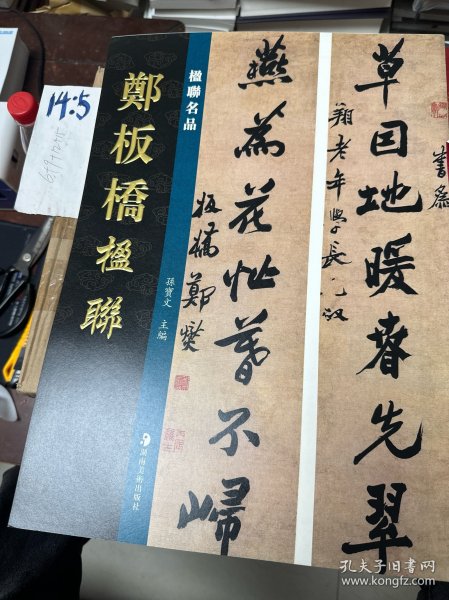 鄭板橋楹聯
楹聯名品
孫寶文 主編
湖南美術出版社
草因地暖春先翠
書爲
翔老年學長兄政
燕爲花忙暮不歸
板橋鄭燮
14:5
孔夫子旧书网
www.kongfz.com